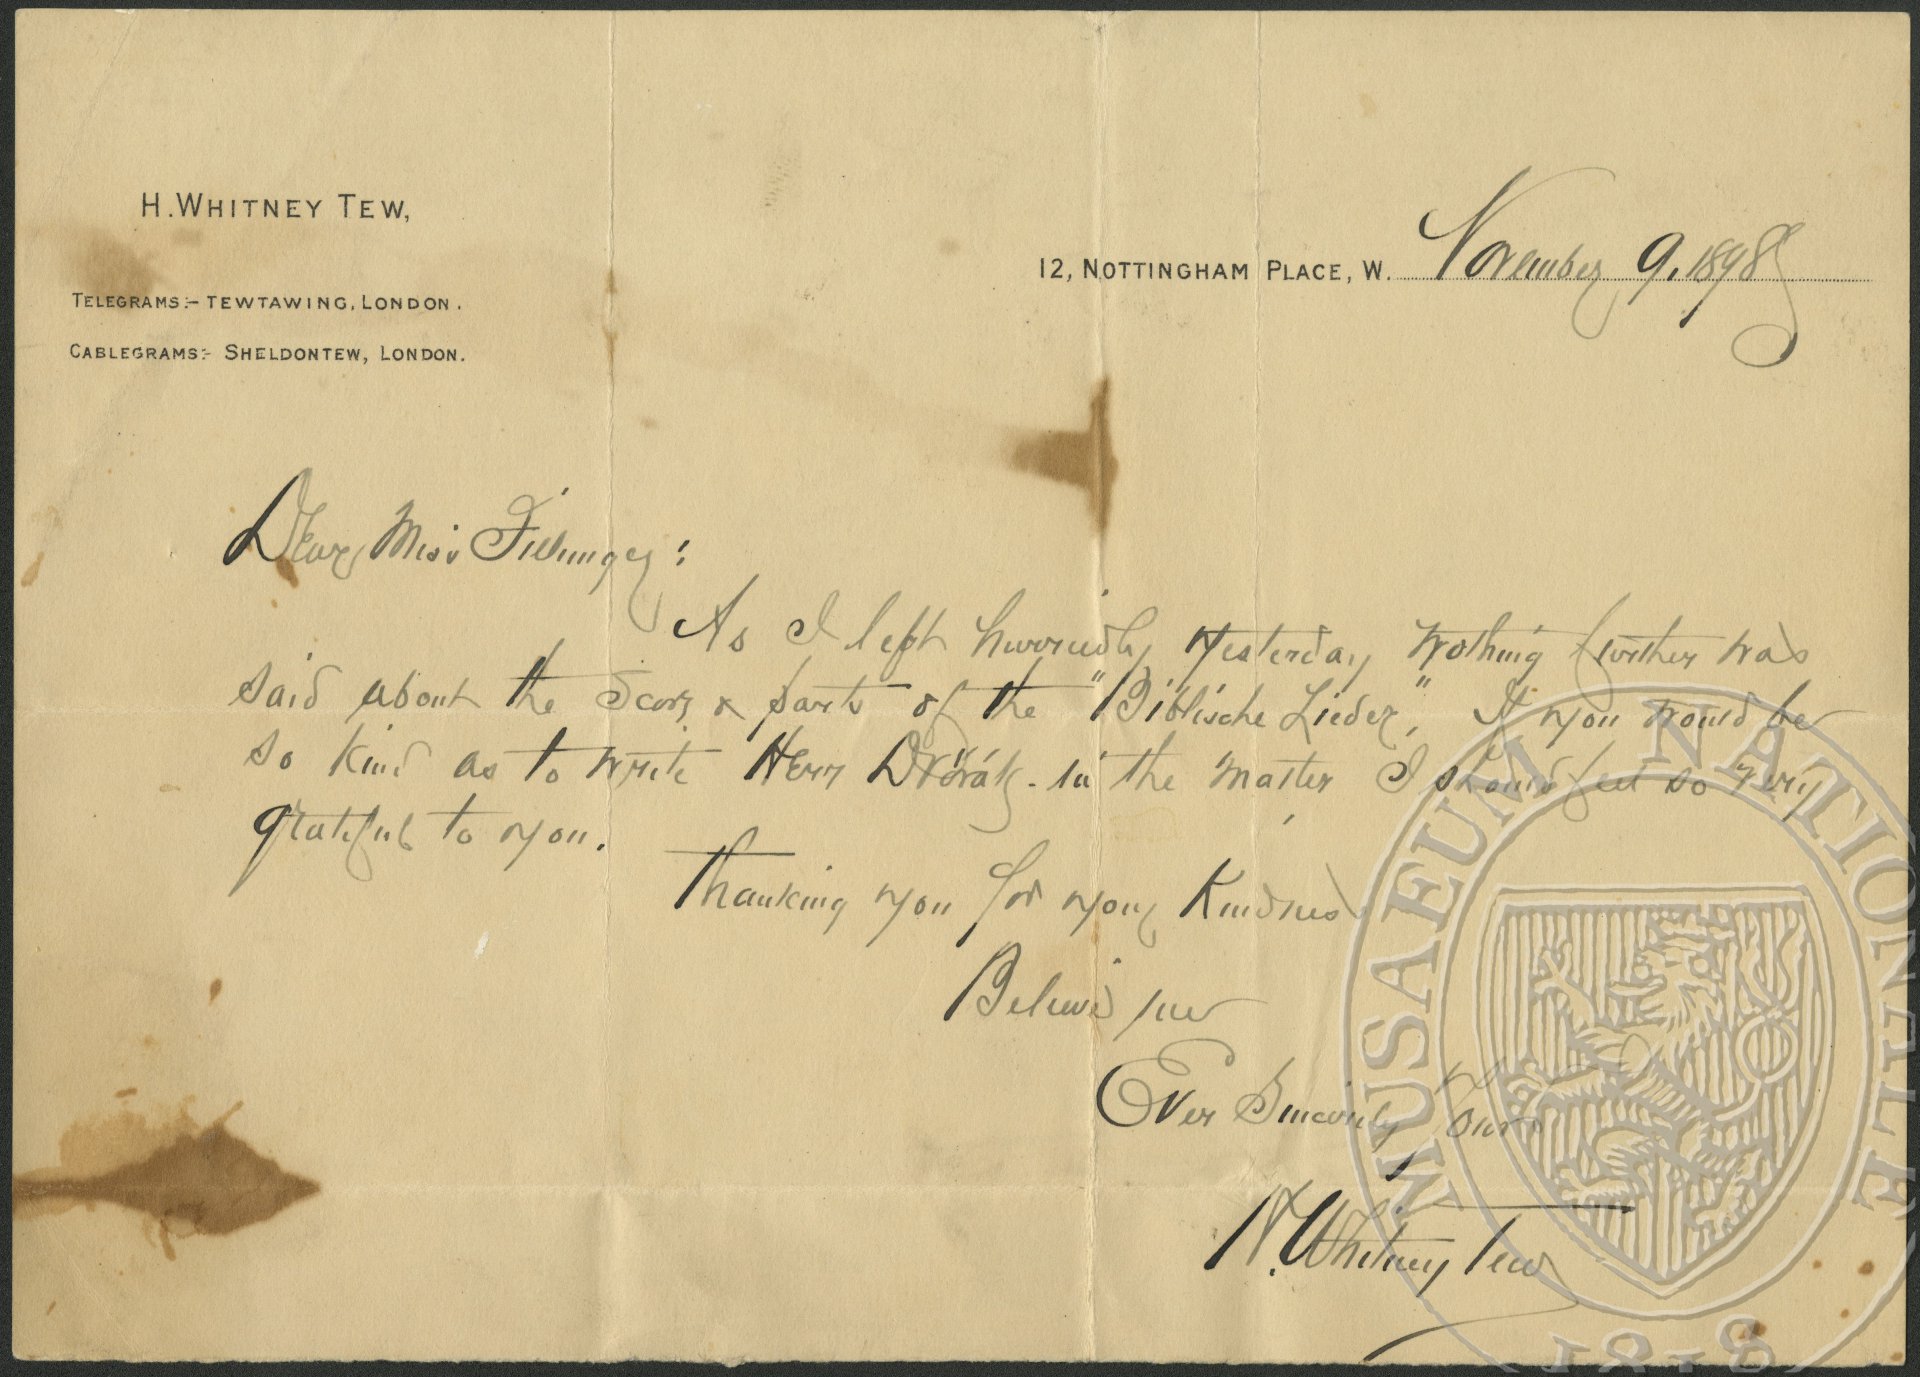 H. WHITNEY TEW,
TELEGRAMS:- TEWTAWING, LONDON.
CABLEGRAMS:- SHELDONTEW, LONDON.
12, NOTTINGHAM PLACE, W. November 9, 1898
Dear Miss Fillunger:
As I left hurriedly yesterday nothing further was
said about the Score & parts of the "Biblische Lieder," If you would be
so kind as to write Herr Dvořák in the matter I should feel so very
grateful to you.
Thanking you for your Kindness
Believe me
Ever Sincerely Yours
H. Whitney Tew
MUSAEUM NATIONALE
1818